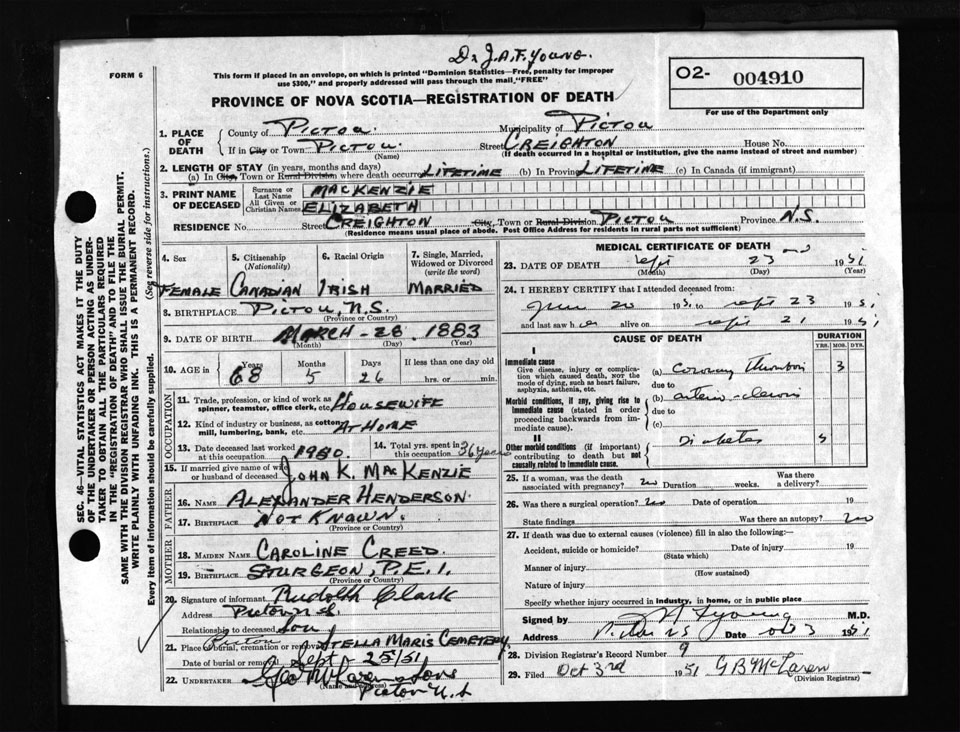 Dr J.A.F. Young.
FORM 6
This form if placed in an envelope, on which is printed "Dominion Statistics—Free, penalty for improper
use $300," and properly addressed will pass through the mail, "FREE"
O2- 004910
For use of the Department only
PROVINCE OF NOVA SCOTIA—REGISTRATION OF DEATH
SEC. 46—VITAL STATISTICS ACT MAKES IT THE DUTY
OF THE UNDERTAKER OR PERSON ACTING AS UNDER-
TAKER TO OBTAIN ALL THE PARTICULARS REQUIRED
IN THE "REGISTRATION OF DEATH" AND TO FILE THE
SAME WITH THE DIVISION REGISTRAR WHO SHALL ISSUE THE BURIAL PERMIT.
WRITE PLAINLY WITH UNFADING INK. THIS IS A PERMANENT RECORD.
Every item of information should be carefully supplied. (See reverse side for instructions.)
1. PLACE OF DEATH
County of Pictou. Municipality of Pictou
If in City or Town Pictou. Street CREIGHTON House No.
(Name) (If death occurred in a hospital or institution, give the name instead of street and number)
2. LENGTH OF STAY (in years, months and days)
(a) In City, Town or Rural Division where death occurred LIFETIME (b) In Province LIFETIME (c) In Canada (if immigrant)
3. PRINT NAME OF DECEASED
Surname or Last Name MACKENZIE
All Given or Christian Names ELIZABETH
RESIDENCE No. Street CREIGHTON City, Town or Rural Division PICTOU Province N.S.
(Residence means usual place of abode. Post Office Address for residents in rural parts not sufficient)
4. Sex
FEMALE
5. Citizenship (Nationality)
CANADIAN
6. Racial Origin
IRISH
7. Single, Married, Widowed or Divorced (write the word)
MARRIED
8. BIRTHPLACE PICTOU N.S.
(Province or Country)
9. DATE OF BIRTH MARCH - 28 1883
(Month) (Day) (Year)
10. AGE in Years Months Days If less than one day old
68 5 26 hrs. or min.
OCCUPATION
11. Trade, profession, or kind of work as spinner, teamster, office clerk, etc. HOUSEWIFE
12. Kind of industry or business, as cotton mill, lumbering, bank, etc. AT HOME
13. Date deceased last worked at this occupation 1950.
14. Total yrs. spent in this occupation 36 years
15. If married give name of wife or husband of deceased JOHN K. MACKENZIE
FATHER
16. Name ALEXANDER HENDERSON.
17. Birthplace NOT KNOWN.
(Province or Country)
MOTHER
18. MAIDEN NAME CAROLINE CREED.
19. BIRTHPLACE STURGEON, P.E.I.
(Province or Country)
20. Signature of informant Rudolth Clark
Address Pictou N.S.
Relationship to deceased Son
21. Place of burial, cremation or removal Pictou STELLA MARIS CEMETERY
Date of burial or removal Sept 25/51
22. UNDERTAKER Sons
(Name and Address) Pictou N.S
MEDICAL CERTIFICATE OF DEATH
23. DATE OF DEATH Sept 23 nd 1951
(Month) (Day) (Year)
24. I HEREBY CERTIFY that I attended deceased from:
June 20 1951 to Sept 23 1951
and last saw her alive on Sept 21 1951
CAUSE OF DEATH DURATION
YRS. MOS. DYS.
I
Immediate cause
Give disease, injury or complication which caused death, not the mode of dying, such as heart failure, asphyxia, asthenia, etc.
(a) Coronary Thrombosis 3
due to
Morbid conditions, if any, giving rise to immediate cause (stated in order proceeding backwards from immediate cause).
(b) arterio-sclerosis
due to
(c)
II
Other morbid conditions (if important) contributing to death but not causally related to immediate cause.
Diabetes 5
25. If a woman, was the death associated with pregnancy? no Duration weeks. Was there a delivery?
26. Was there a surgical operation? no Date of operation 19
State findings Was there an autopsy? no
27. If death was due to external causes (violence) fill in also the following:—
Accident, suicide or homicide? Date of injury 19
(State which)
Manner of injury
(How sustained)
Nature of injury
Specify whether injury occurred in industry, in home, or in public place
Signed by Young M.D.
Address Pictou NS Date Oct 3 1951
28. Division Registrar's Record Number 9
29. Filed Oct 3rd 1951 G B McLaren
(Division Registrar)